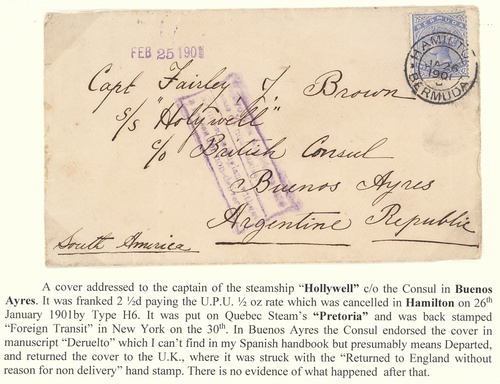 FEB 25 190
BERMUDA
HAMILTON
JA 26
1901
BERMUDA
Capt Fairley of Brown
s/s "Holywell"
c/o British Consul
Buenos Ayres
Argentine Republic
South America
A cover addressed to the captain of the steamship “Hollywell” c/o the Consul in Buenos
Ayres. It was franked 2 ½d paying the U.P.U. ½ oz rate which was cancelled in Hamilton on 26th
January 1901by Type H6. It was put on Quebec Steam’s “Pretoria” and was back stamped
“Foreign Transit” in New York on the 30th. In Buenos Ayres the Consul endorsed the cover in
manuscript “Deruelto” which I can’t find in my Spanish handbook but presumably means Departed,
and returned the cover to the U.K., where it was struck with the “Returned to England without
reason for non delivery” hand stamp. There is no evidence of what happened after that.